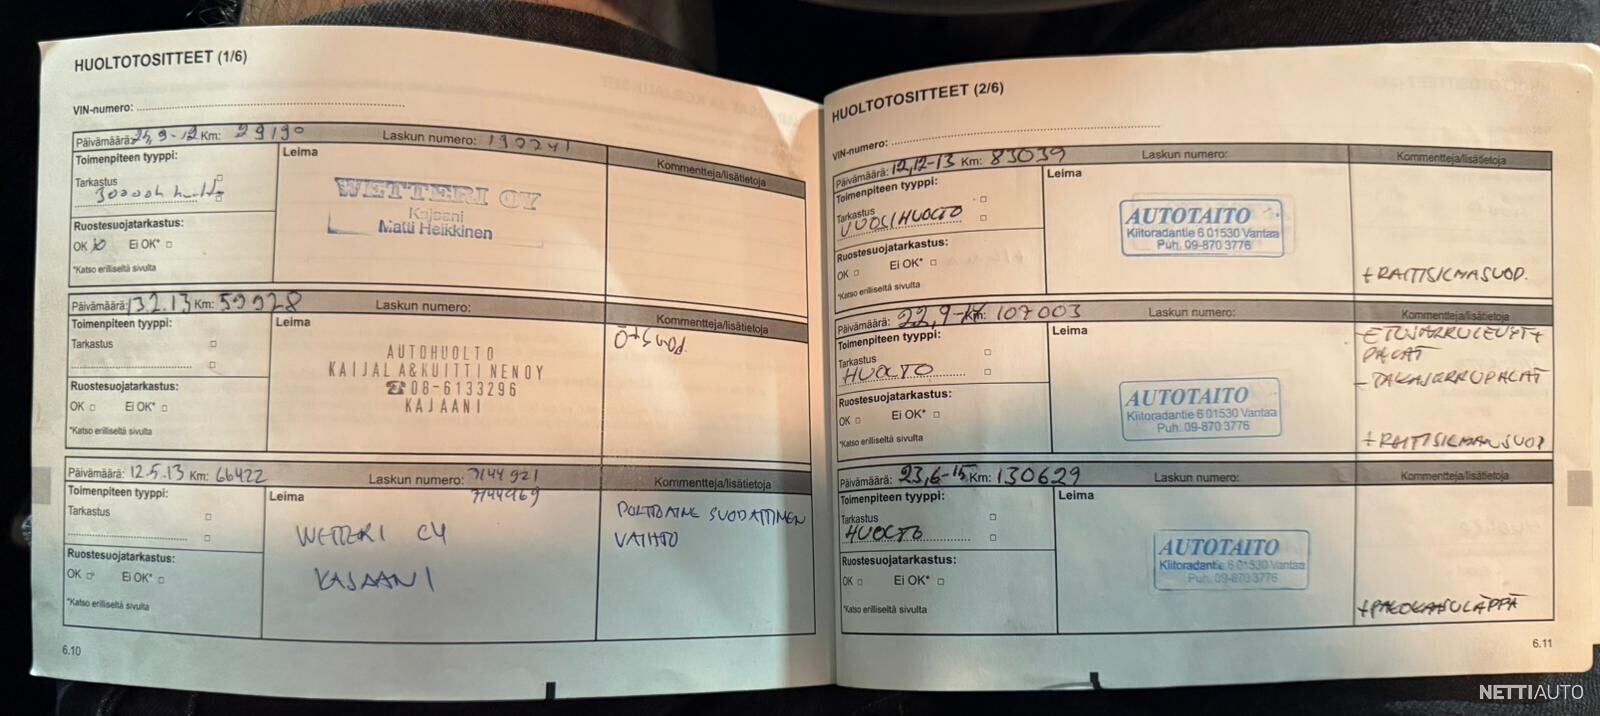 HUOLTOTOSITTEET (1/6)
VIN-numero:
Päivämäärä: 25,9-12 Km: 29190 Laskun numero: 190241
Toimenpiteen tyyppi:
Leima
Kommentteja/lisätietoja
Tarkastus
WETTERI OY
Kajaani
Matti Heikkinen
Ruostesuojatarkastus:
OK Ei OK*
*Katso erilliseltä sivulta
Päivämäärä: 13.2.13 Km: 50928 Laskun numero:
Toimenpiteen tyyppi:
Leima
Kommentteja/lisätietoja
Tarkastus
AUTOHUOLTO
KAIJALA&KUITTINEN OY
☎08-6133296
KAJAANI
Ruostesuojatarkastus:
OK Ei OK*
*Katso erilliseltä sivulta
Päivämäärä: 12.5.13 Km: 66422 Laskun numero: 7144921
7144469
Toimenpiteen tyyppi:
Leima
Kommentteja/lisätietoja
Tarkastus
WETTERI OY
KAJAANI
POLTTOAINE SUODATTIMEN
VAIHTO
Ruostesuojatarkastus:
OK Ei OK*
*Katso erilliseltä sivulta
6.10
HUOLTOTOSITTEET (2/6)
VIN-numero:
Päivämäärä: 12,12-13 Km: 83039 Laskun numero:
Toimenpiteen tyyppi:
Leima
Kommentteja/lisätietoja
Tarkastus
VUOSIHUOLTO
AUTOTAITO
Kiitoradantie 6 01530 Vantaa
Puh. 09-870 3776
Ruostesuojatarkastus:
OK Ei OK*
*Katso erilliseltä sivulta
+RAITISILMASUOD.
Päivämäärä: 22,9-14 Km: 107003 Laskun numero:
Toimenpiteen tyyppi:
Leima
Kommentteja/lisätietoja
Tarkastus
HUOLTO
-ETUJARRULEVYT+
PALAT
-TAKAJARRUPALAT
AUTOTAITO
Kiitoradantie 6 01530 Vantaa
Puh. 09-870 3776
Ruostesuojatarkastus:
OK Ei OK*
*Katso erilliseltä sivulta
+RAITISILMANSUOD
Päivämäärä: 23,6-15 Km: 130629 Laskun numero:
Toimenpiteen tyyppi:
Leima
Kommentteja/lisätietoja
Tarkastus
HUOLTO
AUTOTAITO
Kiitoradantie 6 01530 Vantaa
Puh. 09-870 3776
Ruostesuojatarkastus:
OK Ei OK*
*Katso erilliseltä sivulta
+PAKOKAASULÄPPÄ
6.11
NETTIAUTO